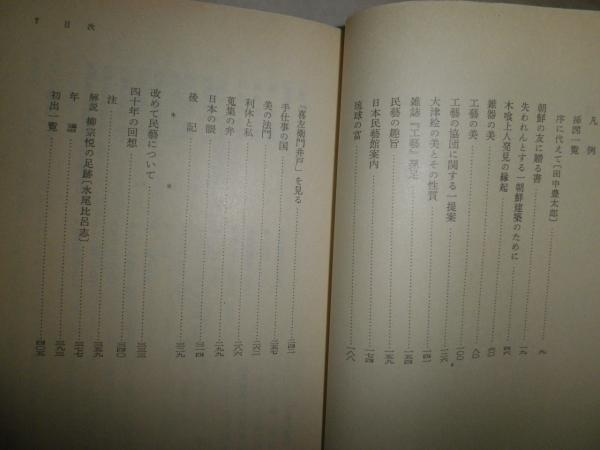 凡例
挿図一覧
序に代えて〔田中豊太郎〕
朝鮮の友に贈る書……九
失われんとする一朝鮮建築のために……
木喰上人発見の縁起……
雑器の美……
工藝の美……
工藝の協団に関する一提案……
大津絵の美とその性質……
雑誌『工藝』発足……
民藝の趣旨……一五九
日本民藝館案内……一七四
琉球の富……一八八
「喜左衛門井戸」を見る……
手仕事の国……
美の法門……
利休と私……
蒐集の弁……
日本の眼……
後記……
＊　＊
改めて民藝について……
四十年の回想……
注……
解説 柳宗悦の足跡〔水尾比呂志〕……
年譜……
初出一覧……四〇五
目次
7